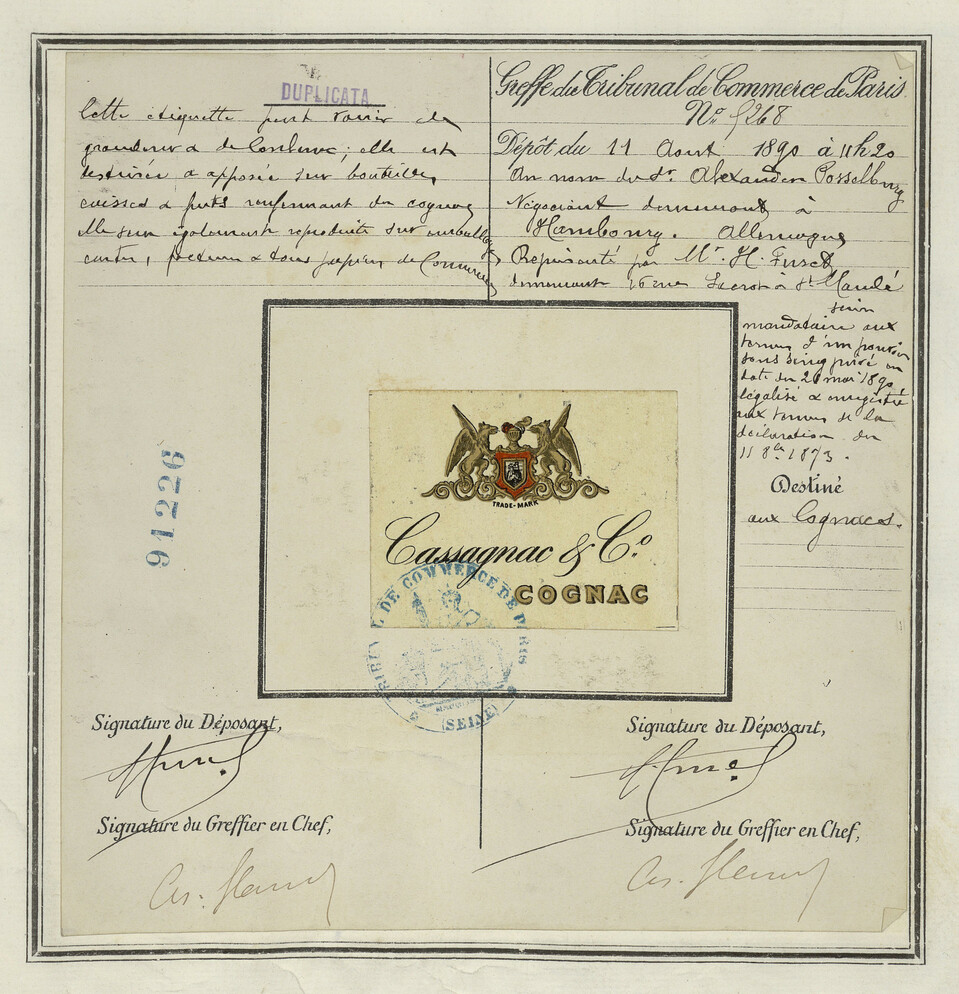 DUPLICATA
Cette étiquette peut varier de
grandeur & de couleur ; elle est
destinée à apposée sur bouteilles,
caisses & futs renfermant du cognac
elle sera également reproduite sur emballages
cartes, facteurs & tous papiers de Commerce
Greffe du Tribunal de Commerce de Paris
No 5268
Dépôt du 11 Aout 1890 à 11h20
Au nom du Sr. Alexander Posselburg
Négociant demeurant à
Hambourg. Allemagne
Représenté par Mr. H. Fuset
demeurant 26 rue à St Mandé
son
mandataire aux
termes d'un pouvoir
sous seing privé en
date du 20 mai 1890
légalisé & enregistré
aux termes de la
déclaration du
11 8bre 1873.
Destiné
aux Cognacs.
91226
TRADE-MARK
Cassagnac & Co
COGNAC
TRIBUNAL DE COMMERCE DE PARIS
(SEINE)
Signature du Déposant,
Signature du Déposant,
Signature du Greffier en Chef,
Signature du Greffier en Chef,